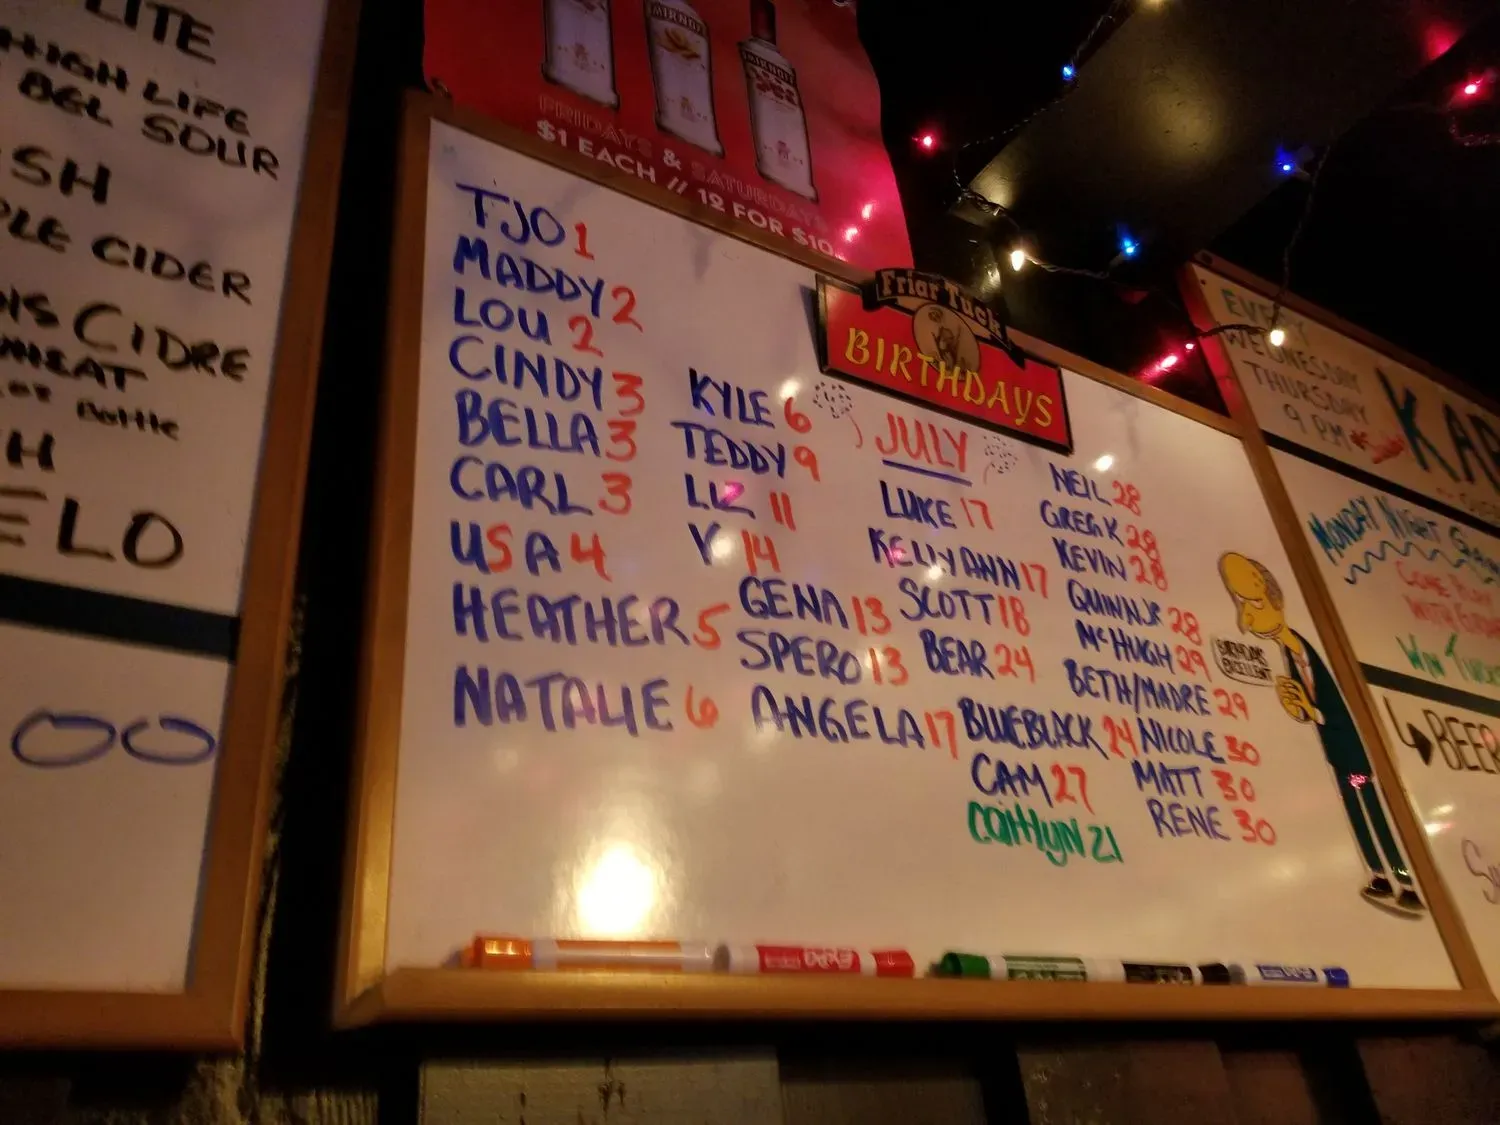 LITE
HIGH LIFE
BEL SOUR
SH
PLE CIDER
IS CIDRE
WHEAT
Bottle
H
ELO
SMIRNOFF
FRIDAYS & SATURDAYS
$1 EACH // 12 FOR $10
Friar Tuck
BIRTHDAYS
JULY
TJO 1
MADDY 2
LOU 2
CINDY 3
BELLA 3
CARL 3
USA 4
HEATHER 5
NATALIE 6
KYLE 6
TEDDY 9
LIZ 11
V 14
GENA 13
SPERO 13
ANGELA 17
LUKE 17
KELLYANN 17
SCOTT 18
BEAR 24
BLUEBLACK 24
CAM 27
CAITLYN 21
NEIL 28
GREG K 28
KEVIN 28
QUINN JR 28
McHUGH 29
BETH/MADRE 29
NICOLE 30
MATT 30
RENE 30
EXCELLENT
EXPO
EVERY
WEDNESDAY
THURSDAY
9 PM
KAR
MONDAY NIGHT
COME PLAY
WITH
WIN
BEER